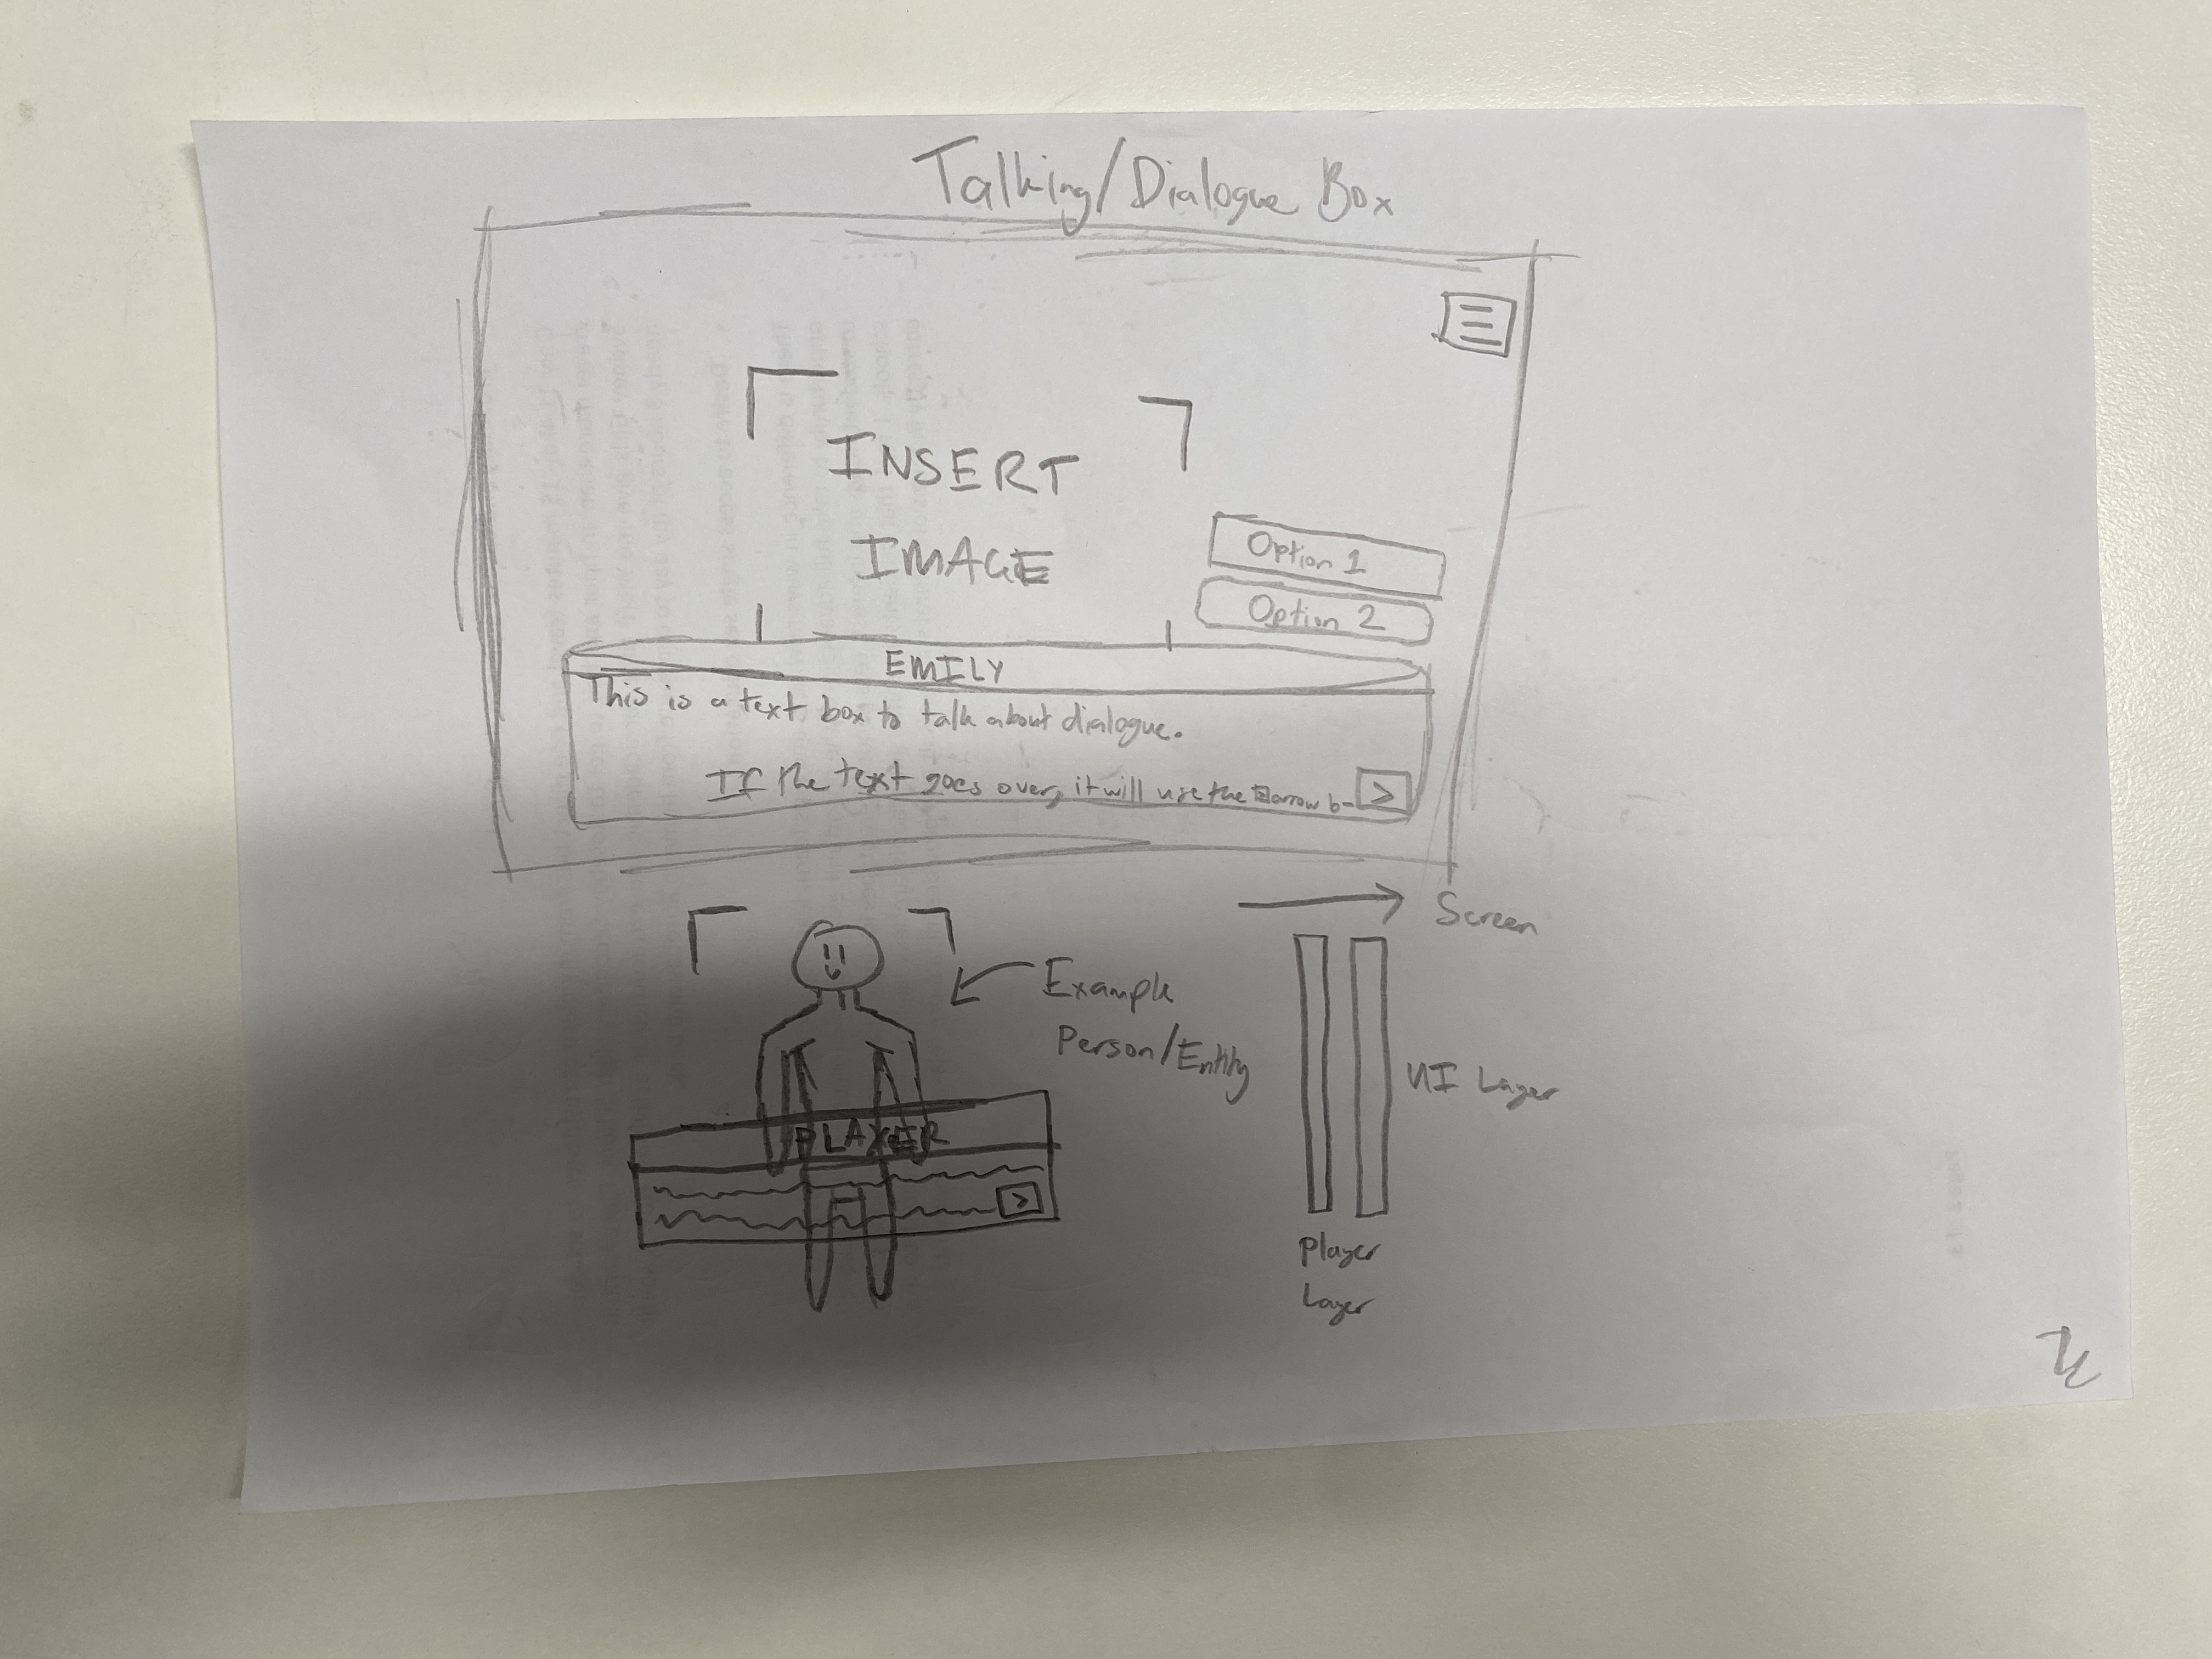 Talking/Dialogue Box
INSERT
IMAGE
Option 1
Option 2
EMILY
This is a text box to talk about dialogue.
If the text goes over, it will use the arrow b-
>
Screen
Example
Person/Entity
PLAYER
>
UI Layer
Player
Layer